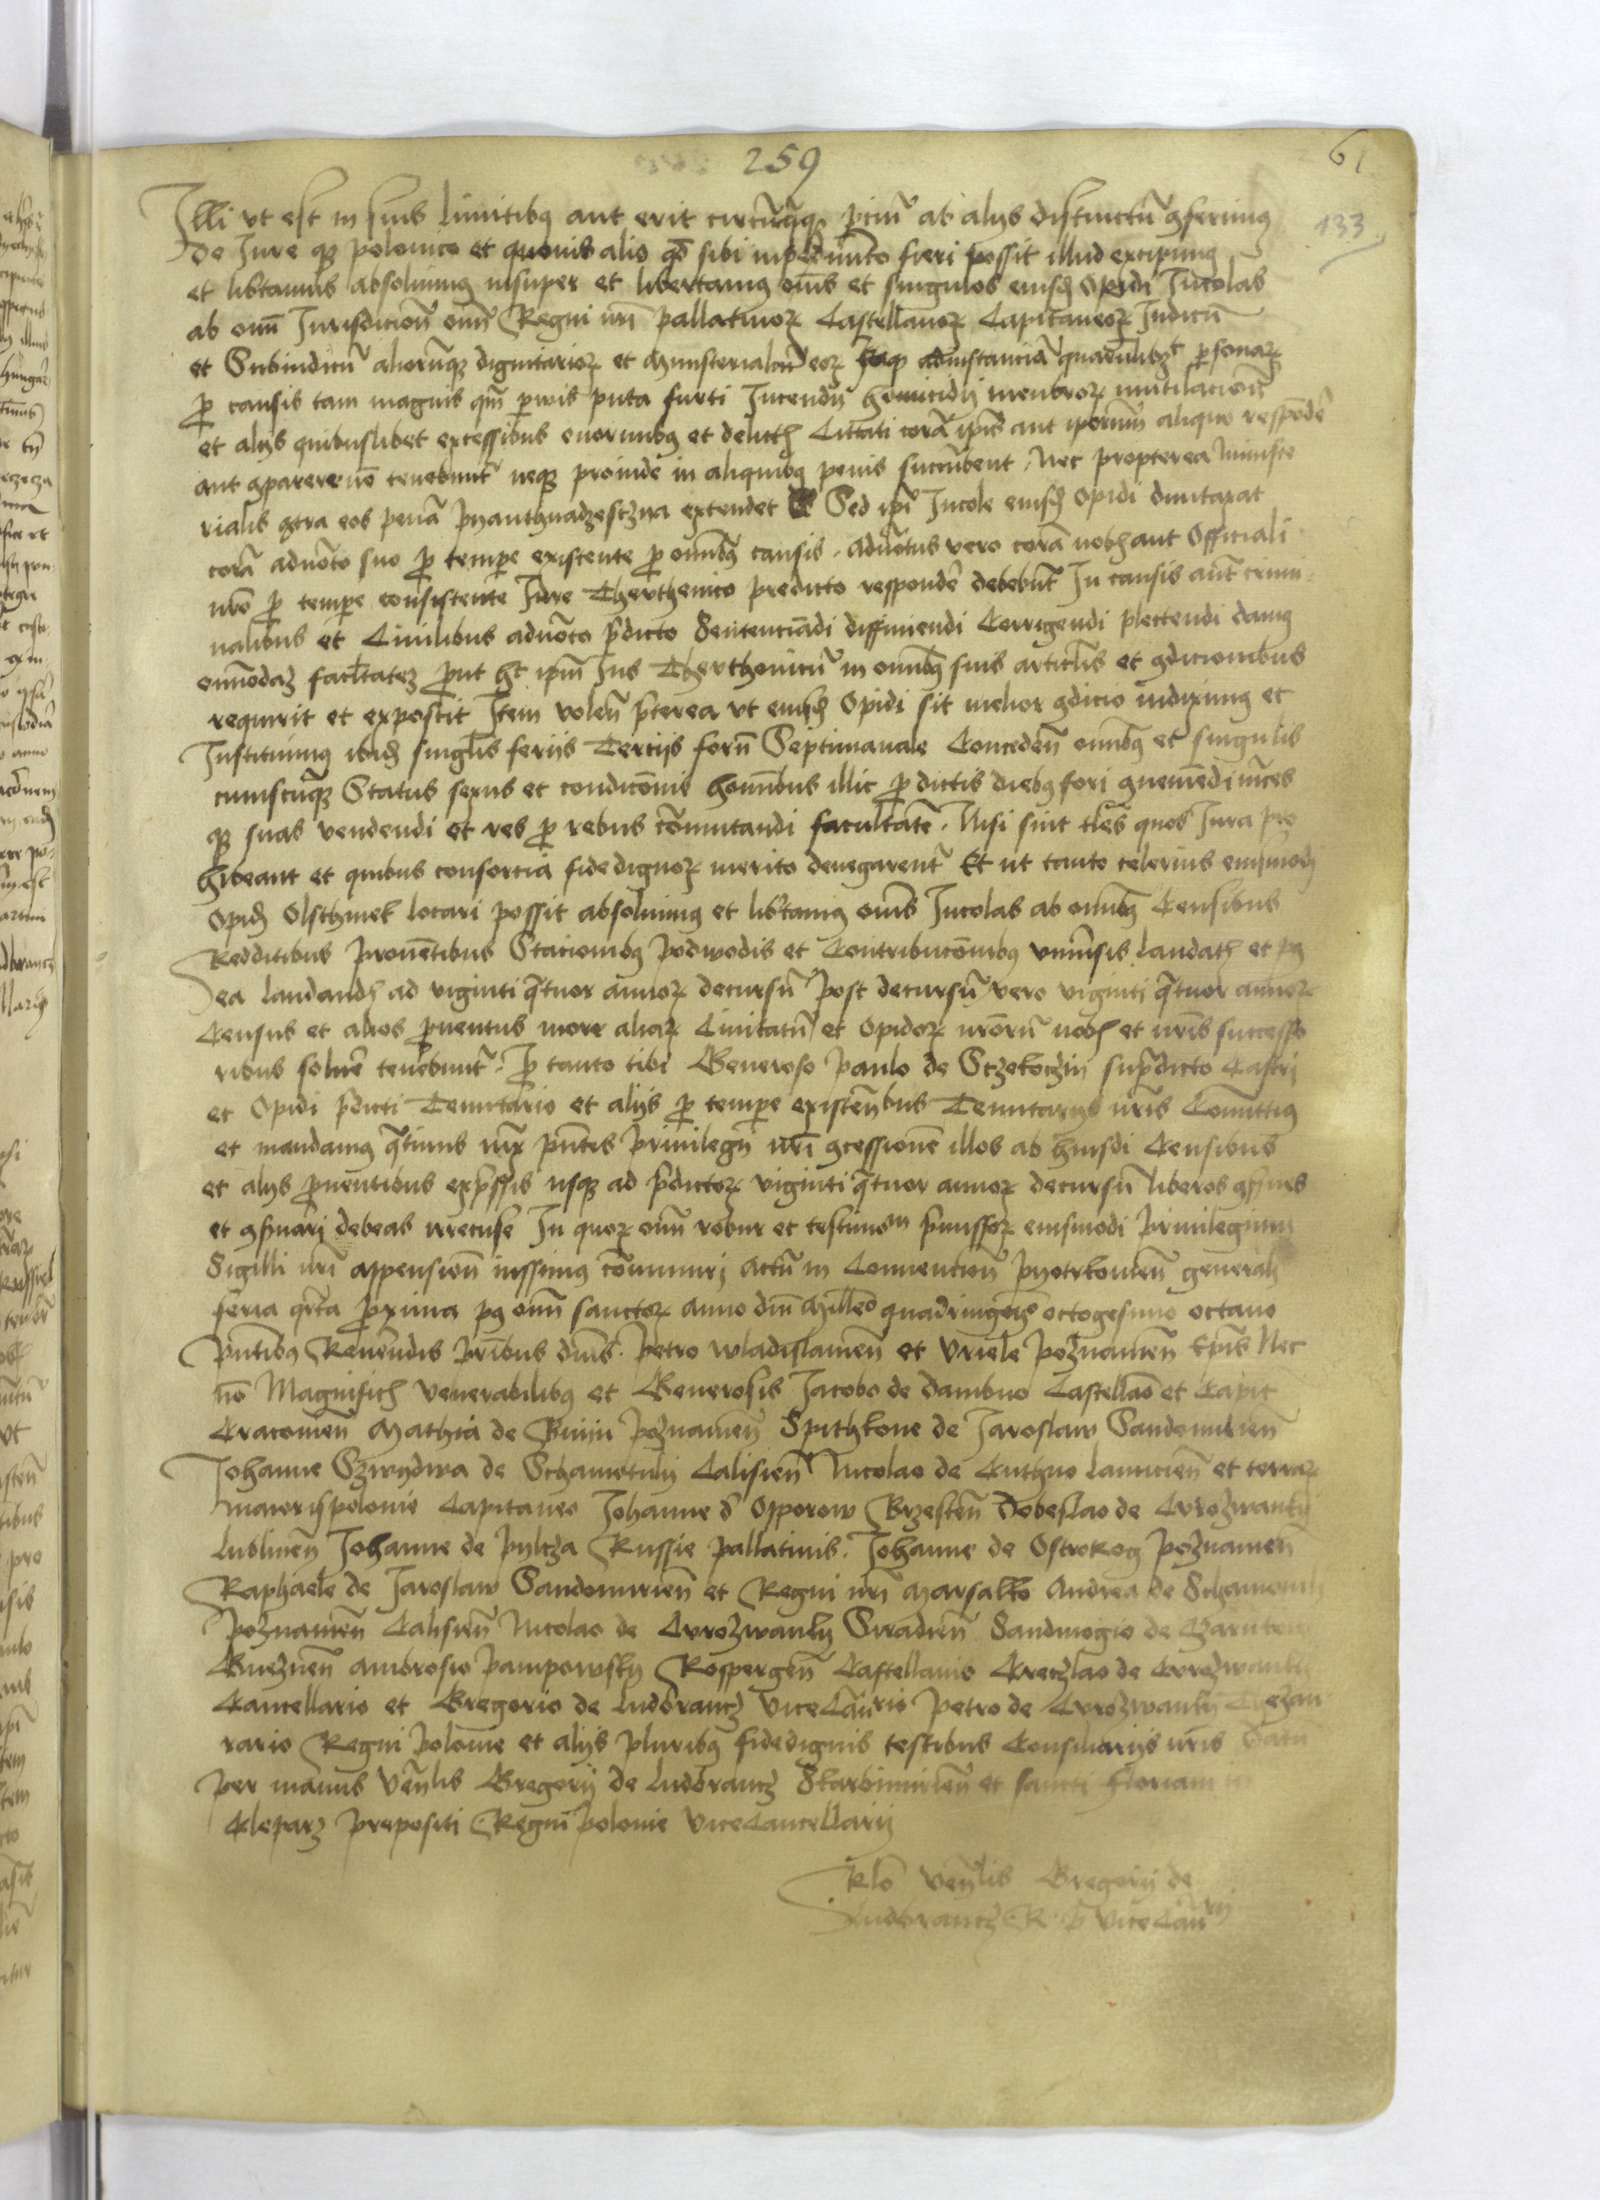 259
61
133
Illi ut est in suis limitibus aut erit circumquaque ab alys distinctu conferimus
de Iure q3 polonico et quovis alio qd sibi inpedimento fieri possit illud excipimus
et libtamus absolvimus insuper et libertamus omes et singulos eiusd Opidi Incolas
ab omi Iurisdicione omi Regni nri pallatinor Castellanor Capitaneor Iudicu
et Subiudicu aliorumq3 dignitarior et Ministerialiu eor ad instancia personar
p causis tam magnis qm pvis puta furti Incendy homicidy membror mutilacione
et alys quibuslibet excessibus enormibus et delictis Citati cora ipis aut ipsorum aliquo respondere
aut comparere no tenebuntur neq3 proinde in aliquibus penis succubent. Nec propterea Ministe
rialis contra eos pena pyanthnadzesczya extendet Sed ipi Incole eiusd Opidi dumtaxat
cora advocato suo p tempore existente p omnibus causis. Advocatus vero cora nobis aut Officiali
nro p tempore consistente Iure Theuthonico predicto respondere debebunt In causis aut crimi
nalibus et Civilibus advocato pdicto Sentenciandi diffiniendi Corrigendi plectendi damus
omnimoda facultate put hoc ipm Ius Thewthonicu in omnibus suis articlis et condicionibus
requirit et exposcit Item volen pterea ut eiusd Opidi sit melior condicio indiximus et
Instituimus ibid singlis feriis Terciis foru Septimanale Conceden omnibus et singulis
cuiuscumq3 Status sexus et condicionis hominibus illic p dictis diebus fori conveniendi merces
q3 suas vendendi et res p rebus comutandi facultate. Nisi sint tles quos Iura pro
hibeant et quibus consorcia fidedignor merito denegarentur Et ut tanto celerius eiusmodi
Opid Olsthinek locari possit absolvimus et libtamus omes Incolas ab omnibus Censibus
Redditibus proventibus Stacionibus podwodis et Contribucionibus universis laudatis et post
ea laudandis ad viginti quatuor annor decursu Post decursu vero viginti quatuor annor
Census et alios pventus more aliar Civitatu et Opidor nroru nobis et nris successo
ribus solvere tenebuntur. p tanto tibi Generoso paulo de Sczekoczin supdicto Castri
et Opidi pdicti Tenutario et alys p tempore existentibus Tenutarys nris Comittimus
et mandamus quatinus iux pntis privilegy nri concessione illos ab huiusdi Censibus
et alys pventibus expressis usq3 ad pdictor viginti quatuor annor decursu liberos conserves
et conservari debeas irrecuse In quor omniu robur et testimonium pmissor eiusmodi privilegium
Sigilli nri appensione iussimus comuniri Actu in Convencione pyotrkovien generali
feria qrta proxima post omn sanctor Anno dni Millesimo quadringentesimo octogesimo octavo
Pntibus Reverendis pribus dnis. Petro Wladislavien et Uriele Poznanien Epis Nec
no Magnificis Venerabilibus et Generosis Jacobo de dambno Castellano et Capit
Cracovien Mathia de Bnin Poznanien Spithkone de Jaroslaw Sandomirien
Johanne Szwydwa de Schamotuly Calisien Nicolao de Cuthno lanicien et terrar
maioris polonie Capitaneo Johanne de Opporow Brzesten Dobeslao de Curozwanky
lublinen Johanne de pylcza Russie pallatinis. Johanne de Ostrorog Poznanien
Raphaele de Jaroslaw Sandomirien et Regni nri Marsalko Andrea de Schamotuli
Poznanien Calisien Nicolao de Curozwanky Siradien Sandivogio de Czarnkow
Gneznen Ambrosio pampowsky Rospergen Castellanis Creczlao de Curozwanky
Cancellario et Gregorio de ludbrancz ViceCancellario Petro de Curozwanky Thezau
rario Regni polonie et alys pluribus fidedignis testibus Consiliarys nris Datu
per manus Venlis Gregory de ludbrancz Skarbimirien et sancti floriani
Cleparz prepositi Regni polonie ViceCancellary
Rlo venlis Gregory de
ludbrancz R. p ViceCancellary